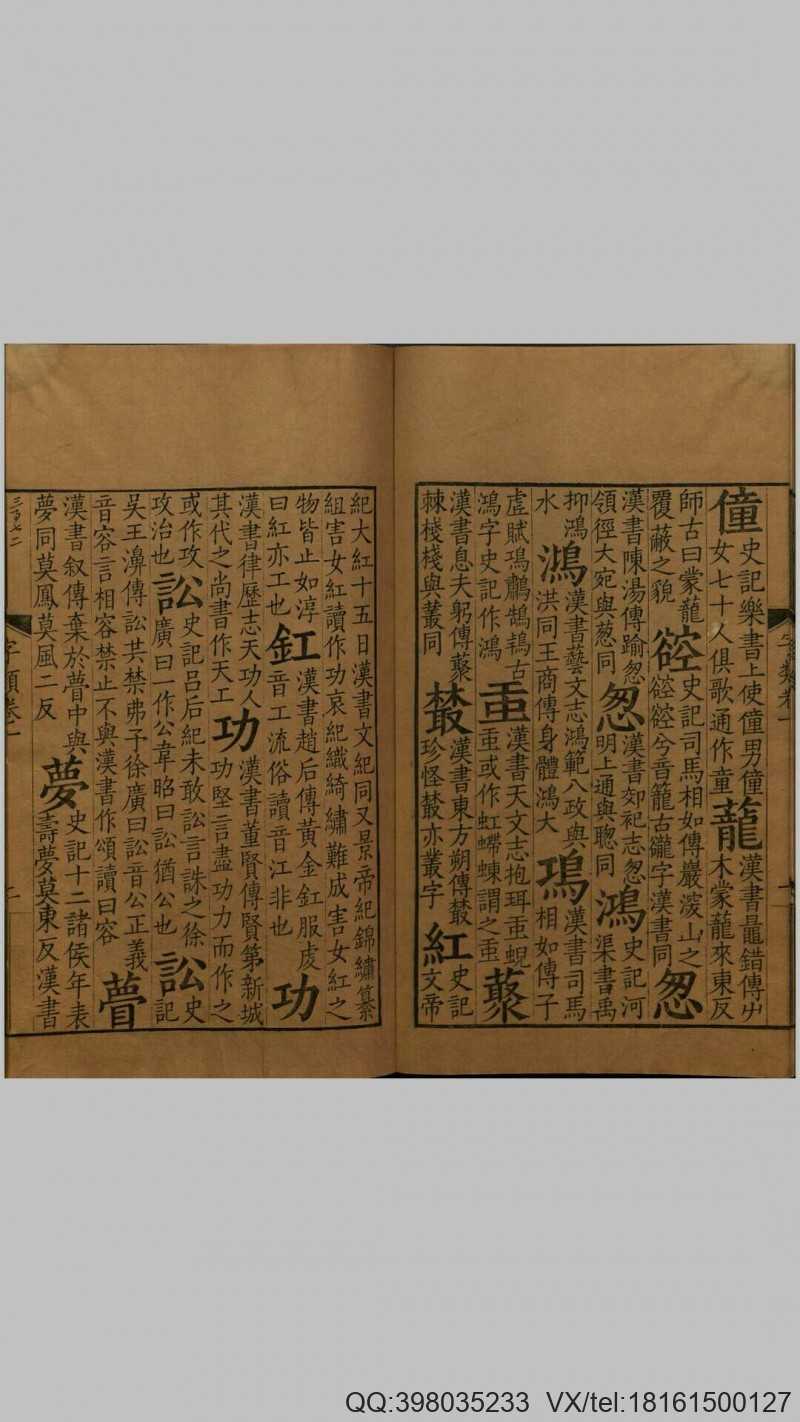 僮史記樂書上使僮男僮女七十人俱歌通作童蘢漢書鼂錯傳屮木蒙蘢來東反
師古曰蒙蘢覆蔽之貌谾史記司馬相如傳巖深山之谾谾兮音籠古豅字漢書同怱
漢書陳湯傳踰怱領徑大宛與葱同怱漢書郊祀志怱明上通與聰同鴻史記河渠書禹
抑鴻水鴻漢書藝文志鴻範八政與洪同王商傳身體鴻大鳿漢書司馬相如傳子
虛賦鳿鷫鵠鴇古鴻字史記作鴻䖝漢書天文志抱珥䖝蜺䖝或作虹螮蝀謂之䖝藂
漢書息夫躬傳藂棘棧棧與叢同藂漢書東方朔傳藂珍怪藂亦叢字紅史記文帝
字類卷一
紀大紅十五日漢書文紀同又景帝紀錦繡纂組害女紅讀作功哀紀織綺繡難成害女紅之
物皆止如淳曰紅亦工也釭漢書趙后傳黃金釭服虔音工流俗讀音江非也功
漢書律歷志天功人其代之尚書作天工功漢書董賢傳賢第新城功堅言盡功力而作之
或作攻攻治也訟史記吕后紀未敢訟言誅之徐廣曰一作公韋昭曰訟猶公也訟史記
吴王濞傳訟共禁弗予徐廣曰訟音公正義音容言相容禁止不與漢書作頌讀曰容瞢
漢書叙傳棄於瞢中與夢同莫鳳莫風二反夢史記十二諸侯年表壽夢莫東反漢書
三百七二
字類卷一
QQ:398035233 VX/tel:18161500127